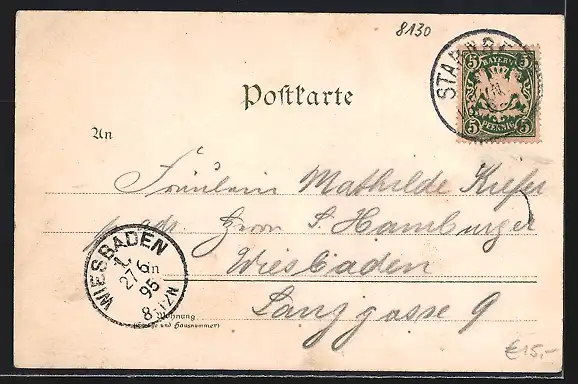 8130
STARNBERG
5 BAYERN 5
5 PFENNIG 5
Postkarte
An
Fräulein Mathilde Kiefer
adr. Herrn S. Hamburger
WIESBADEN
1
in Wiesbaden
27 6
95
8-9 N.
Wohnung
(Straße und Hausnummer)
Langgasse 9
€15,-